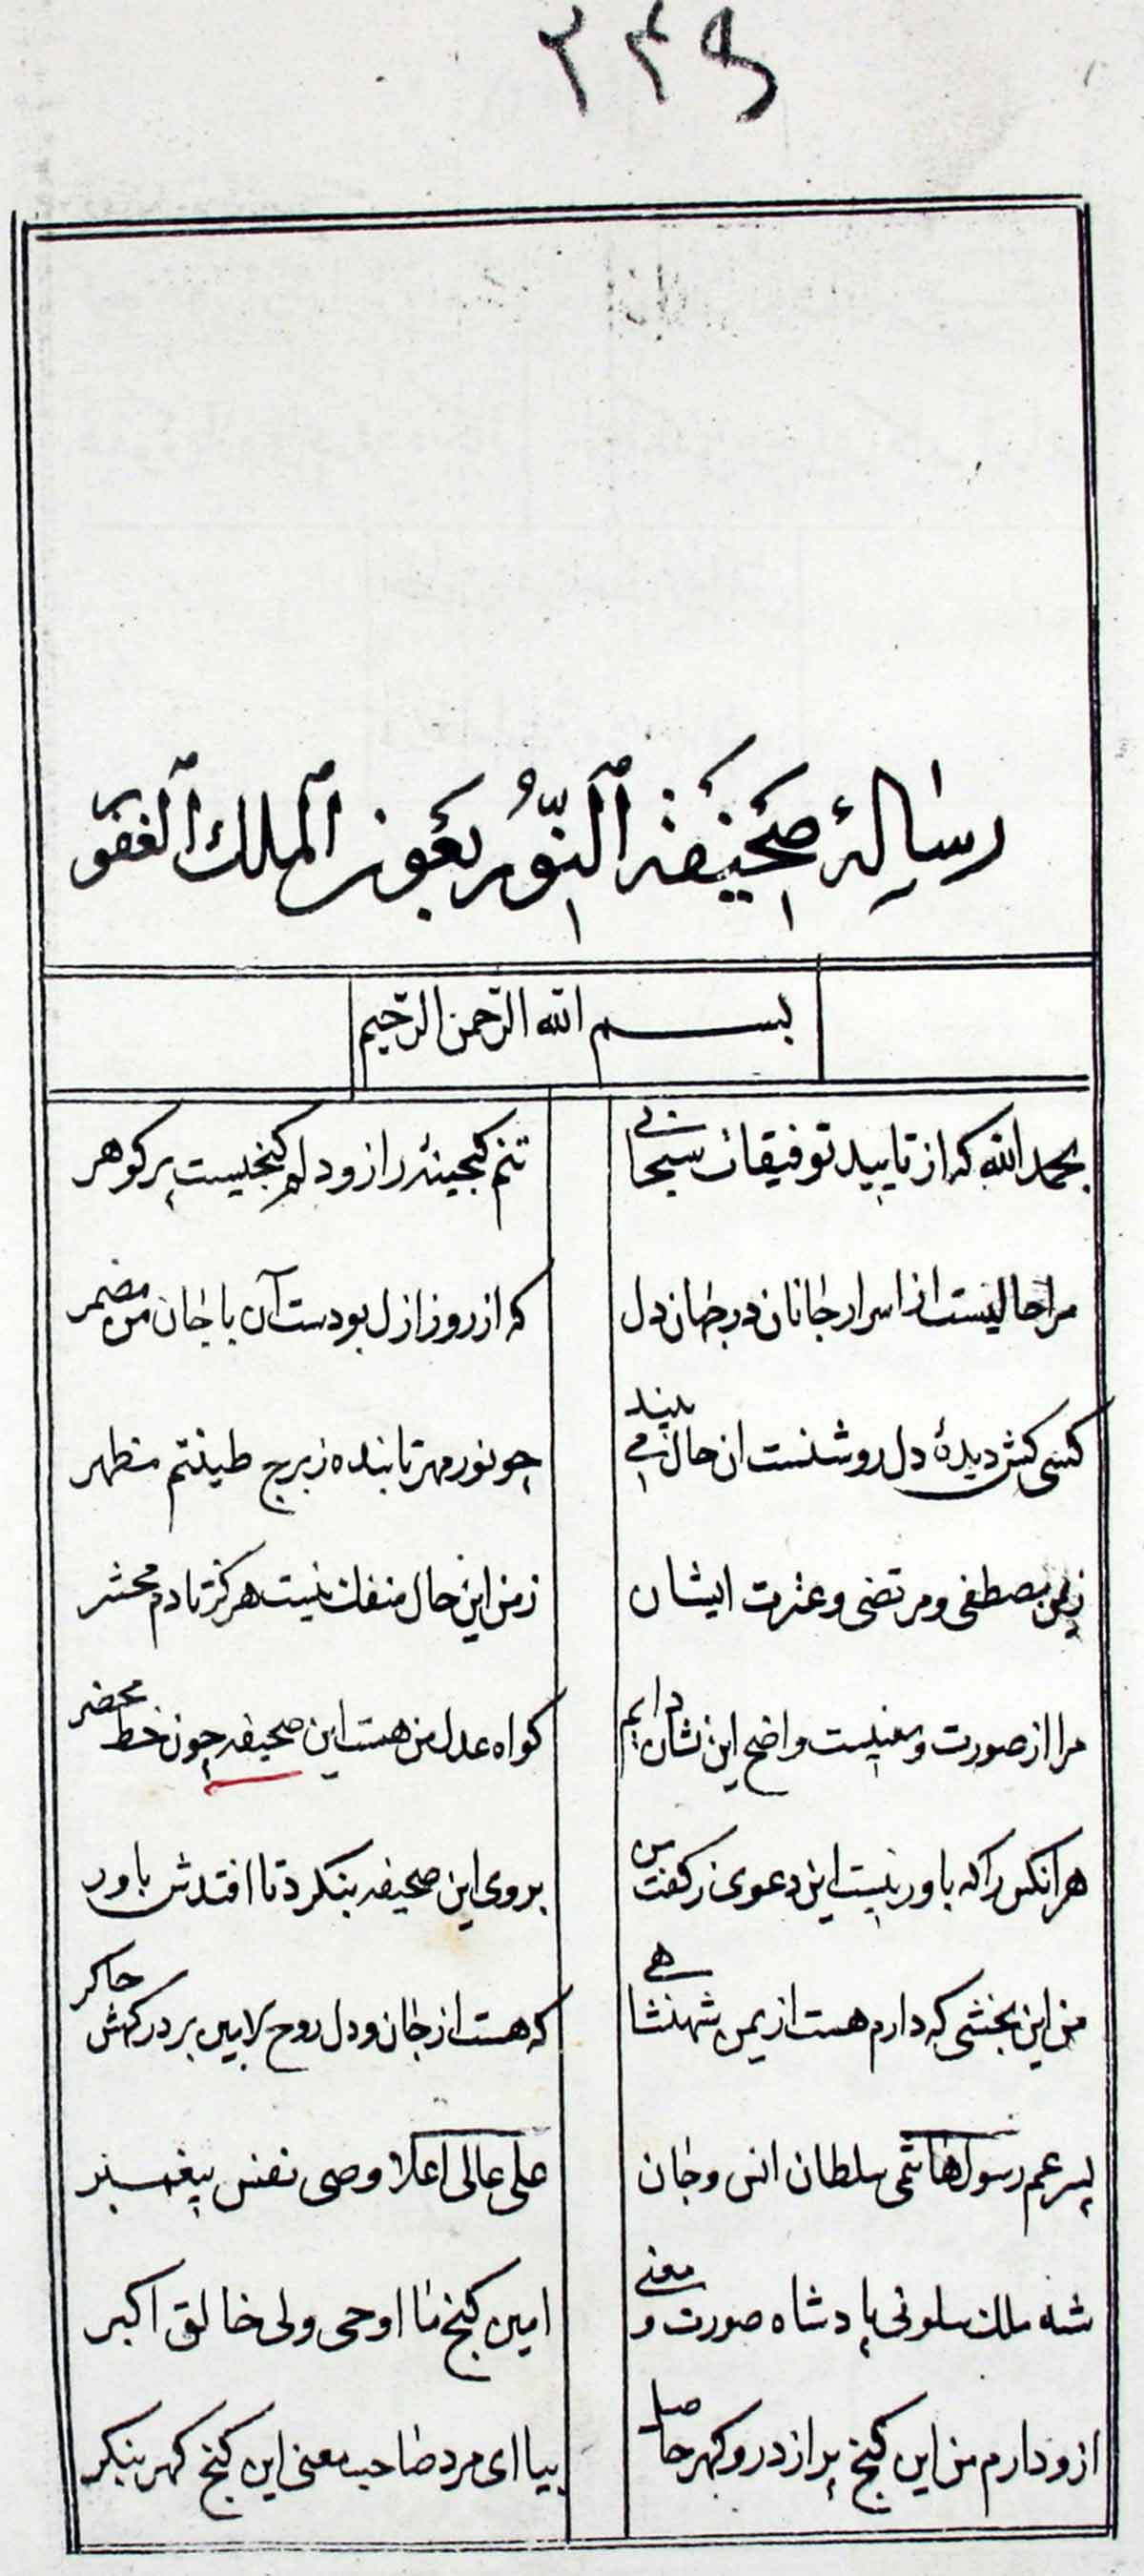 ۲۴۹
رسالهٔ صحیفة النور بعون الملك الغفور
بســم الله الرحمن الرحیم
بحمدالله که از تایید توفیقات سبحانی
تنم کنجینهٔ راز و دلم کنجیست پر کوهر
مرا حالیست از اسرار جانان در جهان دل
که از روز ازل بودست آن با جان من مضمر
کسی کش دیدهٔ دل روشنست آن حال می بیند
چو نور مهر تابنده ز برج طینتم مظهر
ز یمن مصطفی و مرتضی و عترت ایشان
ز من این حال منفک نیست هرکز تا دم محشر
مرا از صورت و معنیست واضح این نشان دایم
کواه عدل من هست این صحیفه چون خط محضر
هر انکس را که باور نیست این دعوی ز کفت من
بروی این صحیفه بنکرد تا افتدش باور
من این بخشی که دارم هست از یمن شهنشاهی
که هست از جان و دل روح الامین بر درکهش چاکر
پسر عم رسول هاشمی سلطان انس و جان
علی عالی اعلا وصی نفس پیغمبر
شه ملك سلونی پادشاه صورت و معنی
امین کنج ما اوحی ولی خالق اکبر
ازو دارم من این کنج پر از در و کهر حاصل
بیا ای مرد صاحب معنی این کنج کهر بنکر